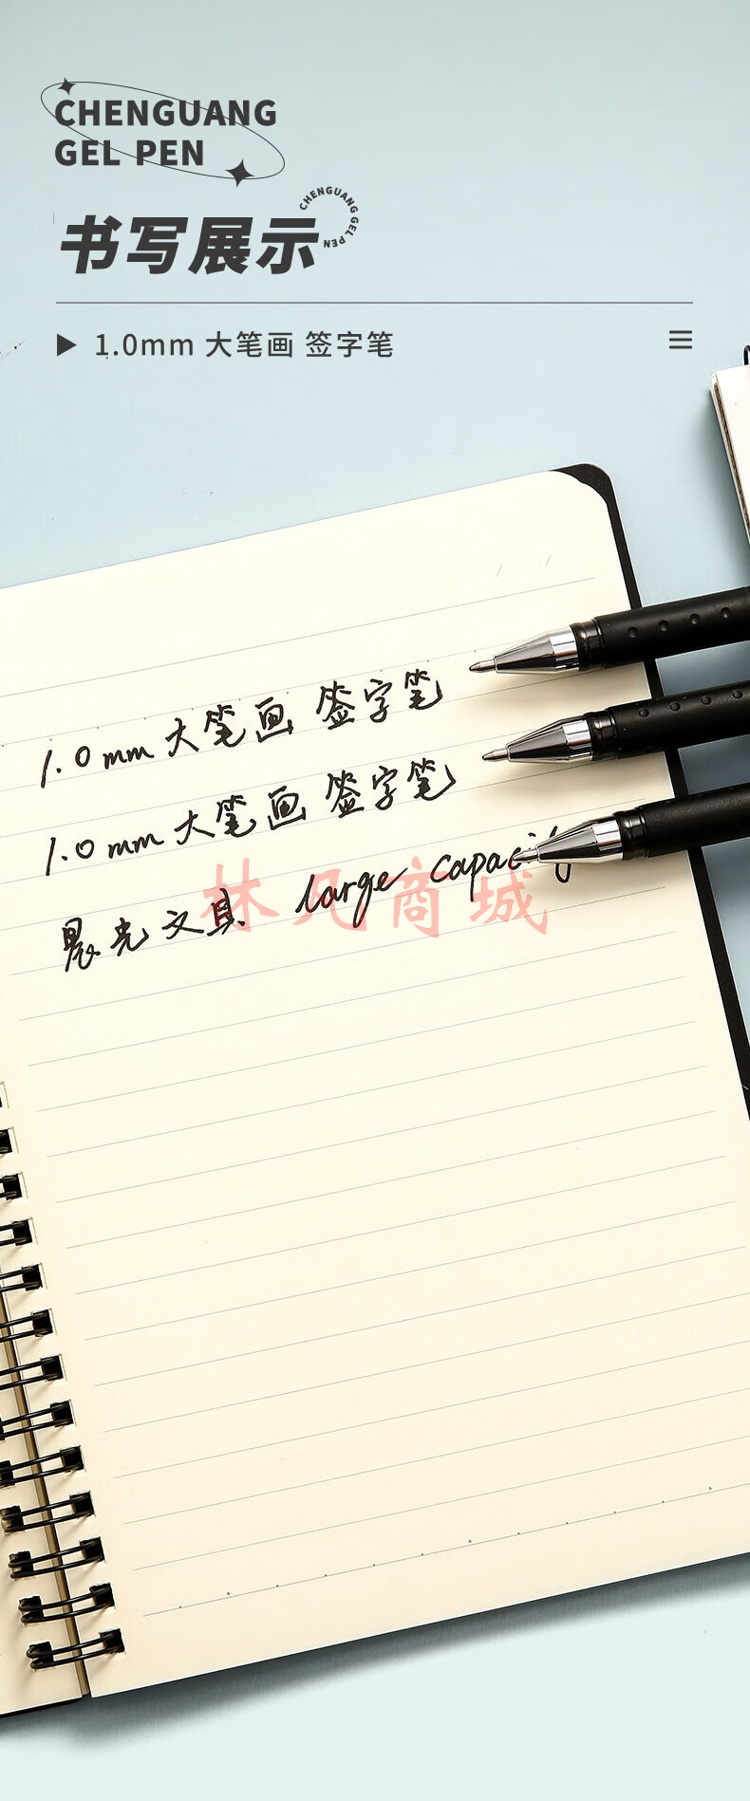 CHENGUANG
GEL PEN
CHENGUANG GEL PEN
书写展示
1.0mm 大笔画 签字笔
1.0mm大笔画 签字笔
1.0mm大笔画 签字笔
晨光文具 large capacity
林凡商城